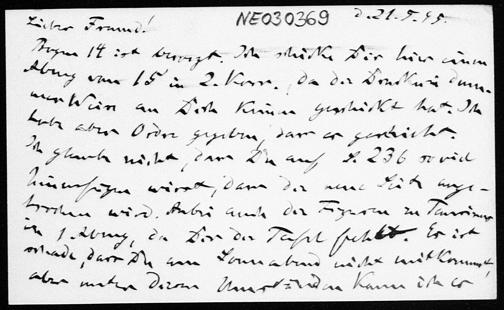 Lieber Freund! NE030369 d. 21.5.95.
Bogen 14 ist besorgt. Ich schicke Dir hier einen
Abzug vom 15 in 2. Korr., da die Druckerei
an Dich keinen geschickt hat. Ich
habe aber Ordre gegeben, dass es geschieht.
Ich glaube nicht, dass Du auf S. 236 soviel
hinzufügen wirst, dass die neue Seite ange-
brochen wird. Anbei auch die Figuren zu
in 1 Abzug, da Dir die Tafel fehlt. Es ist
schade, dass Du am Sonnabend nicht mitkommst,
aber unter diesen Umständen kann ich es